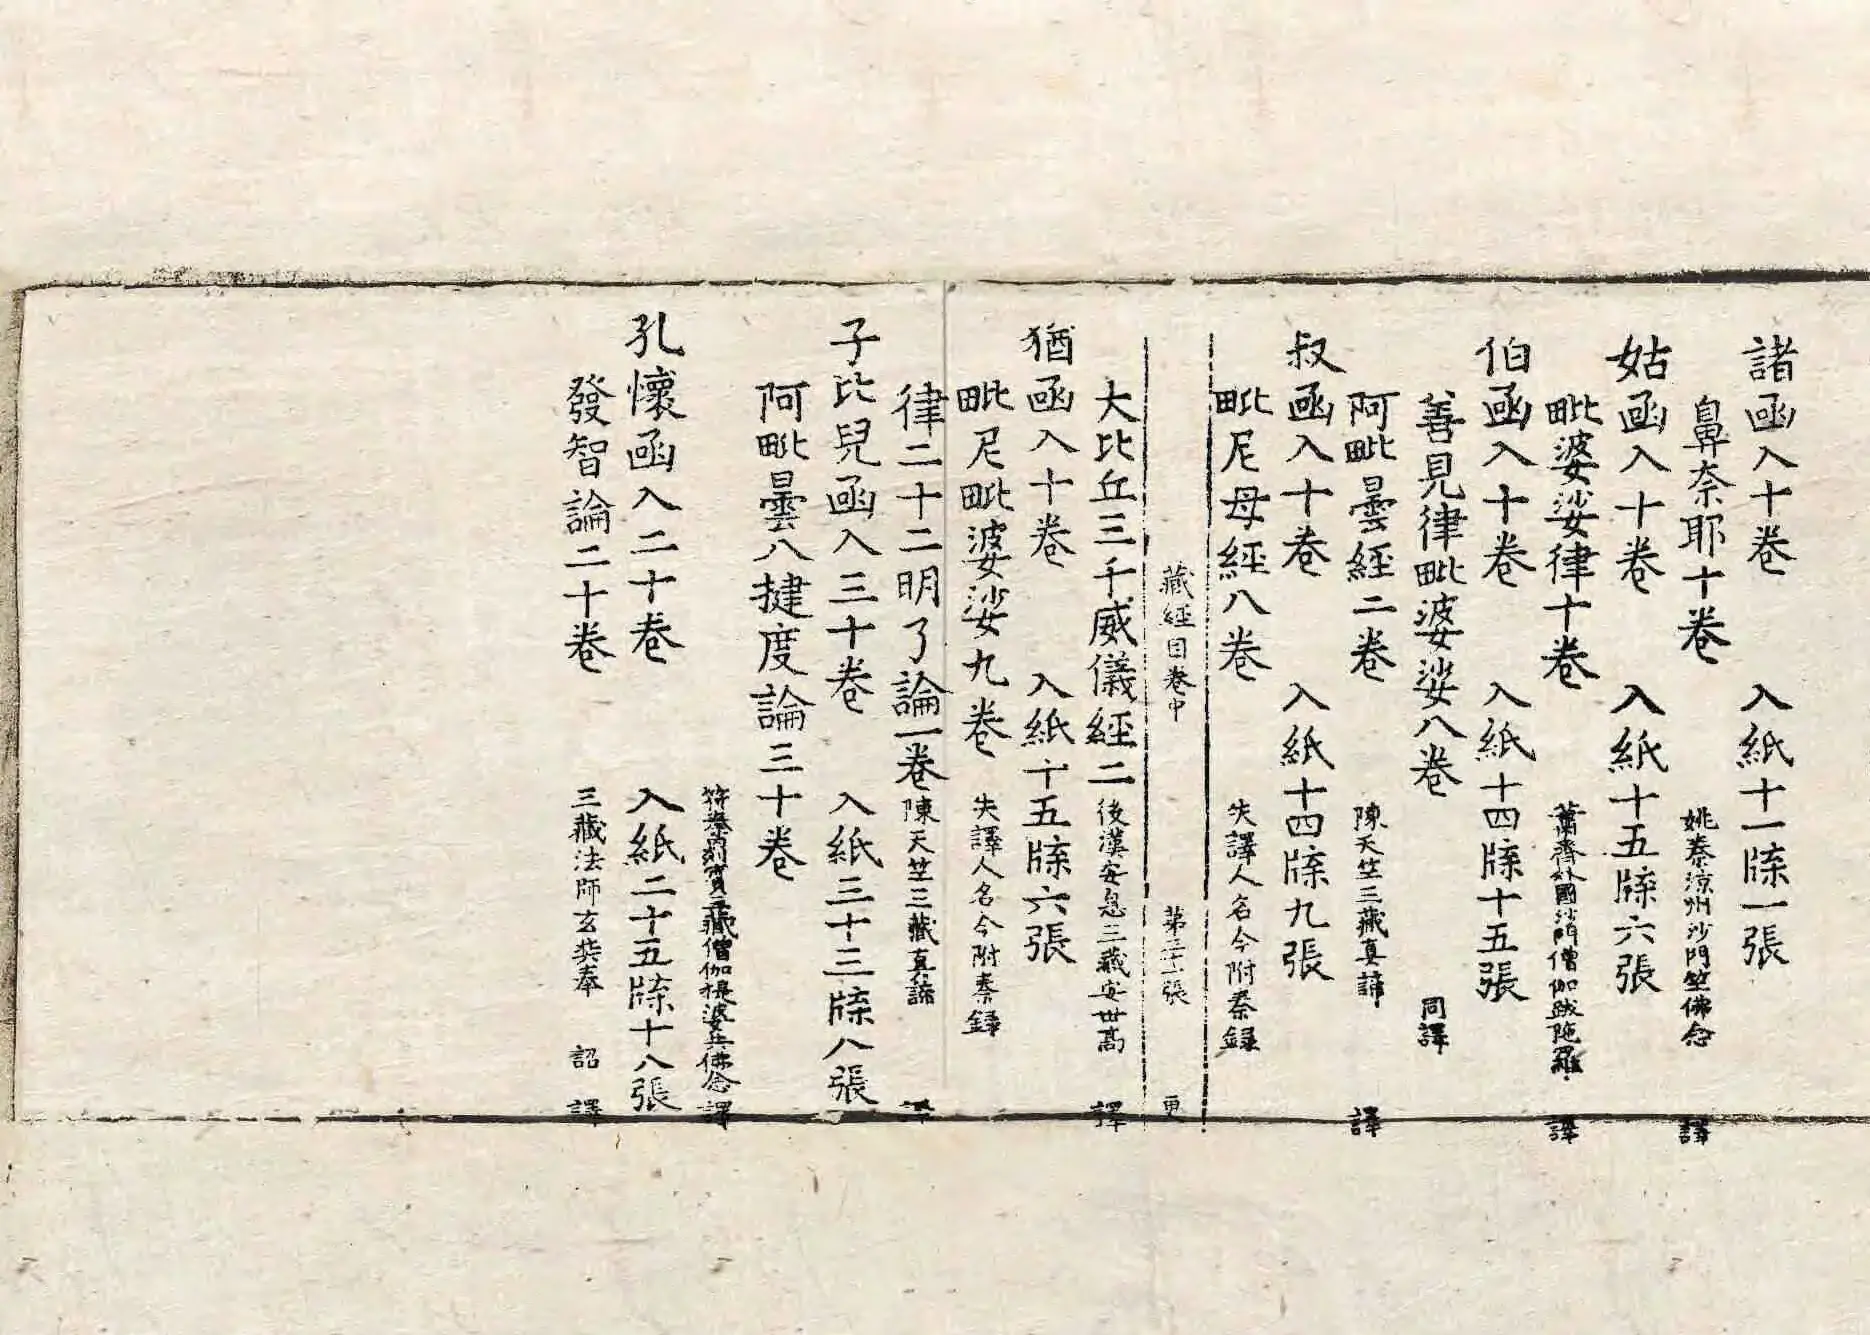 諸函入十卷 入紙十一牒一張
鼻奈耶十卷 姚秦涼州沙門竺佛念 譯
姑函入十卷 入紙十五牒六張
毗婆娑律十卷 蕭齊外國沙門僧伽跋陁羅 譯
伯函入十卷 入紙十四牒十五張
善見律毗婆娑八卷 同譯
阿毗曇經二卷 陳天竺三藏真諦 譯
叔函入十卷 入紙十四牒九張
毗尼母經八卷 失譯人名今附秦録
藏經目卷中 第三十張 更
大比丘三千威儀經二 後漢安息三藏安世高 譯
猶函入十卷 入紙十五牒六張
毗尼毗婆娑九卷 失譯人名今附秦録
律二十二明了論一卷 陳天竺三藏真諦 譯
子比兒函入三十卷 入紙三十三牒八張
阿毗曇八揵度論三十卷
符秦罽賓三藏僧伽提婆共佛念 譯
孔懷函入二十卷 入紙二十五牒十八張
發智論二十卷 三藏法師玄奘奉 詔 譯